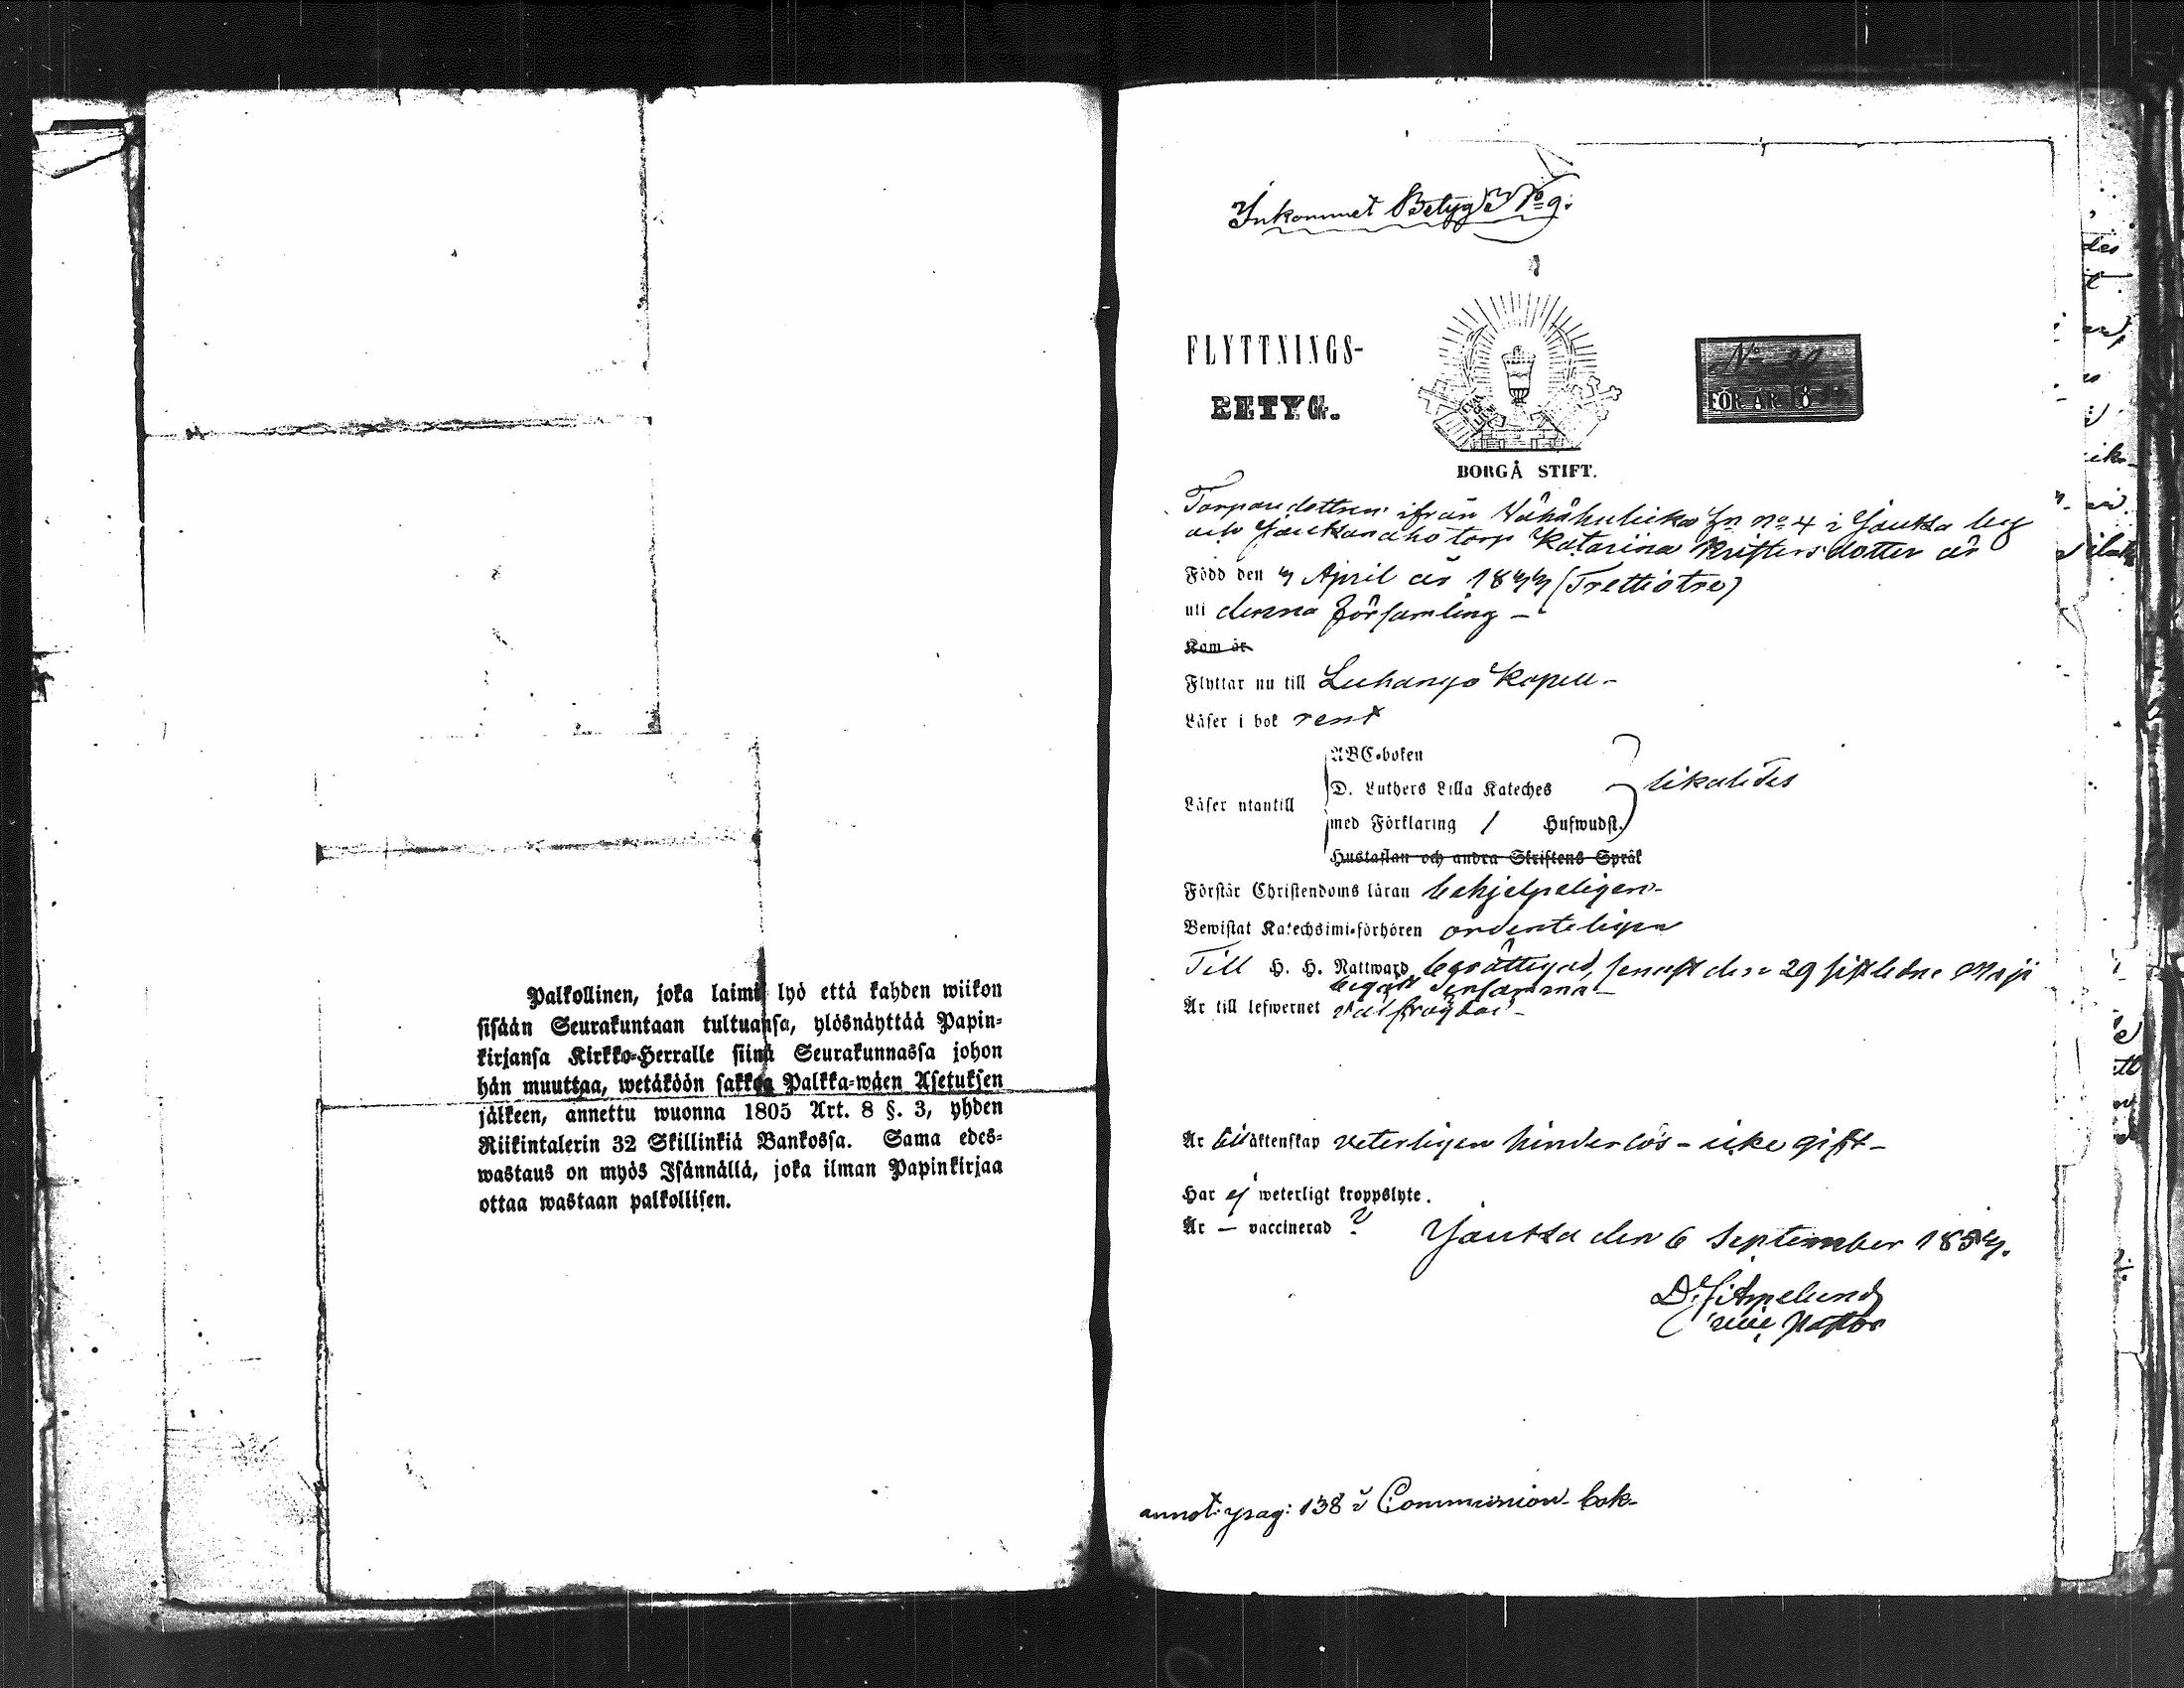 Palkollinen, joka laimi lyö että kahden wiikon
sisään Seurakuntaan tultuansa, ylösnäyttää Papin-
kirjansa Kirkko-Herralle siinä Seurakunnassa johon
hän muuttaa, wetäköön sakkoa Palkka-wäen Asetuksen
jälkeen, annettu wuonna 1805 Art. 8 §. 3, yhden
Riikintalerin 32 Skillinkiä Bankossa. Sama edes-
wastaus on myös Isännällä, joka ilman Papinkirjaa
ottaa wastaan palkollisen.
Inkommet Betyg No 9.
FLYTTNINGS-
BETYG.
No
FÖR ÅR 18
BORGÅ STIFT.
Torparedottren ifrån No 4 i Joutsa by
och torp Katarina Kristersdotter är
Född den 3 April år 1833 (Trettiotre)
uti denna församling –
Kom är
Flyttar nu till Luhango Kapell –
Läser i bok rent
ABC-boken
Läser utantill
D. Luthers Lilla Kateches
likaledes
med Förklaring / Hufwudst.
Hustaflan och andra Skriftens Språk
Förstår Christendoms läran behjelpeligen –
Bewistat Katechsimi-förhören ordenteligen
Till H. H. Nattward berättigad, senast den 29 sistledne Maji
begått densamma –
Är till lefwernet välfrägdad –
Är till äktenskap veterligen hinderlös – icke gift –
Har ej weterligt kroppslyte.
Är – vaccinerad ?
Joutsa den 6 September 1853.
Pastor
annot: pag: 138 i Communion-bok –